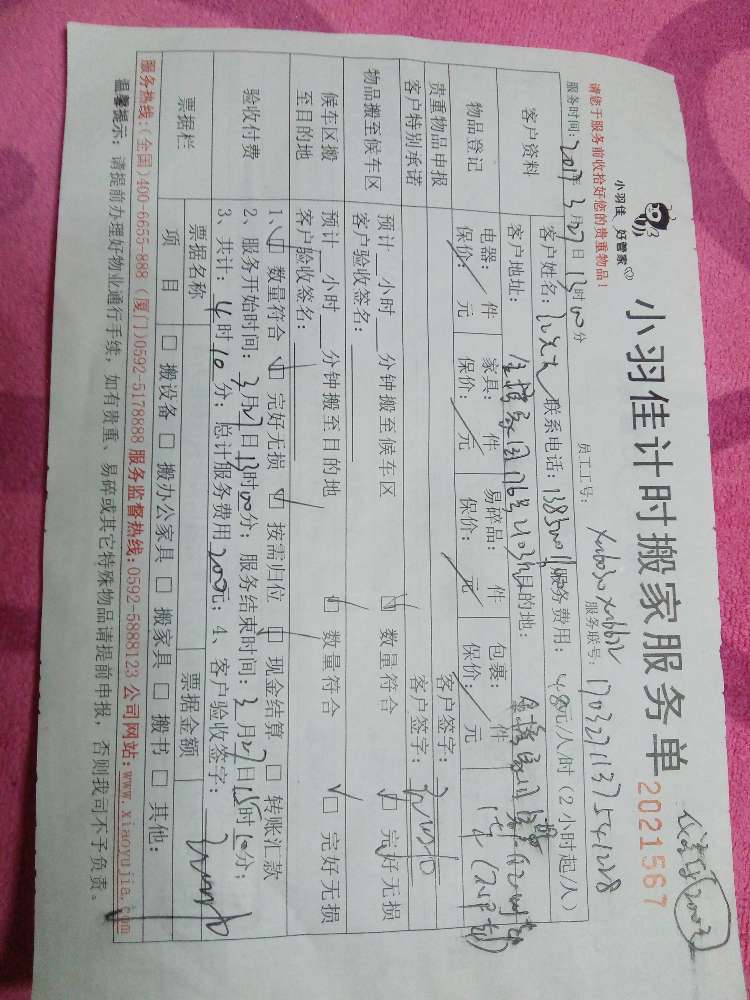 小羽佳计时搬家服务单
2021567
小羽佳、好管家
请您于服务前收拾好您的贵重物品!
员工工号:
服务联号: 1703271137541228
服务时间: 2017年3月27日13时00分
客户资料
客户姓名: 联系电话: 服务费用: 48元/人/时(2小时起/人)
客户地址: 目的地:
物品登记
电器: 件 家具: 件 易碎品: 件 包裹: 件
保价: 元 保价: 元 保价: 元 保价: 元
贵重物品申报
客户特别承诺
客户签字:
客户签字:
物品搬至候车区
预计 小时 分钟搬至候车区
客户验收签名:
□ 数量符合 □ 完好无损
候车区搬
至目的地
预计 小时 分钟搬至目的地
客户验收签名:
□ 数量符合 □ 完好无损
验收付费
1、□ 数量符合 □ 完好无损 □ 按需归位 □ 现金结算 □ 转账汇款
2、服务开始时间: 3月27日13时00分; 服务结束时间: 3月27日15时10分;
3、共计: 4时10分; 总计服务费用200元; 4、客户验收签字:
票据栏
票据名称 票据金额
项 目 □ 搬设备 □ 搬办公家具 □ 搬家具 □ 搬书 □ 其他:
服务热线:(全国)400-6655-888 (厦门)0592-5178888 服务监督热线:0592-5888123 公司网站:www.xiaoyujia.com
温馨提示: 请提前办理好物业通行手续, 如有贵重、易碎或其它特殊物品请提前申报, 否则我司不予负责。